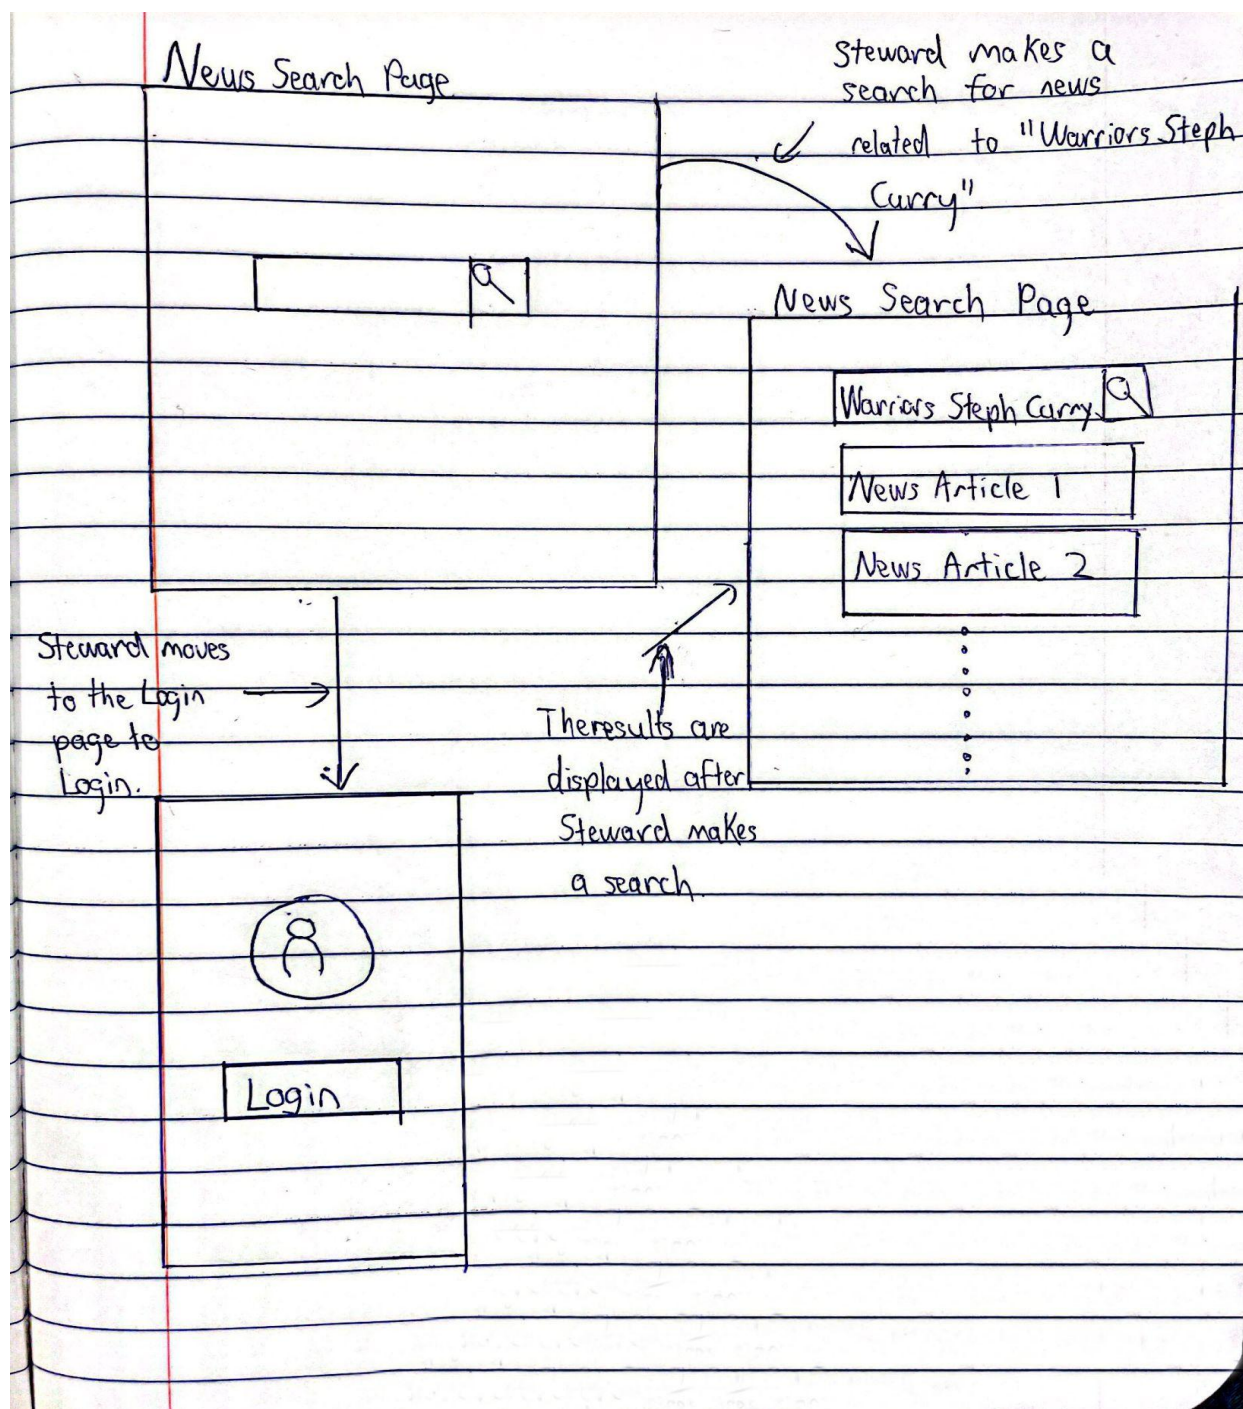 News Search Page
Steward makes a
search for news
related to "Warriors Steph
Curry"
News Search Page
Warriors Steph Curry
News Article 1
News Article 2
Steward moves
to the Login
page to
Login.
The results are
displayed after
Steward makes
a search.
Login